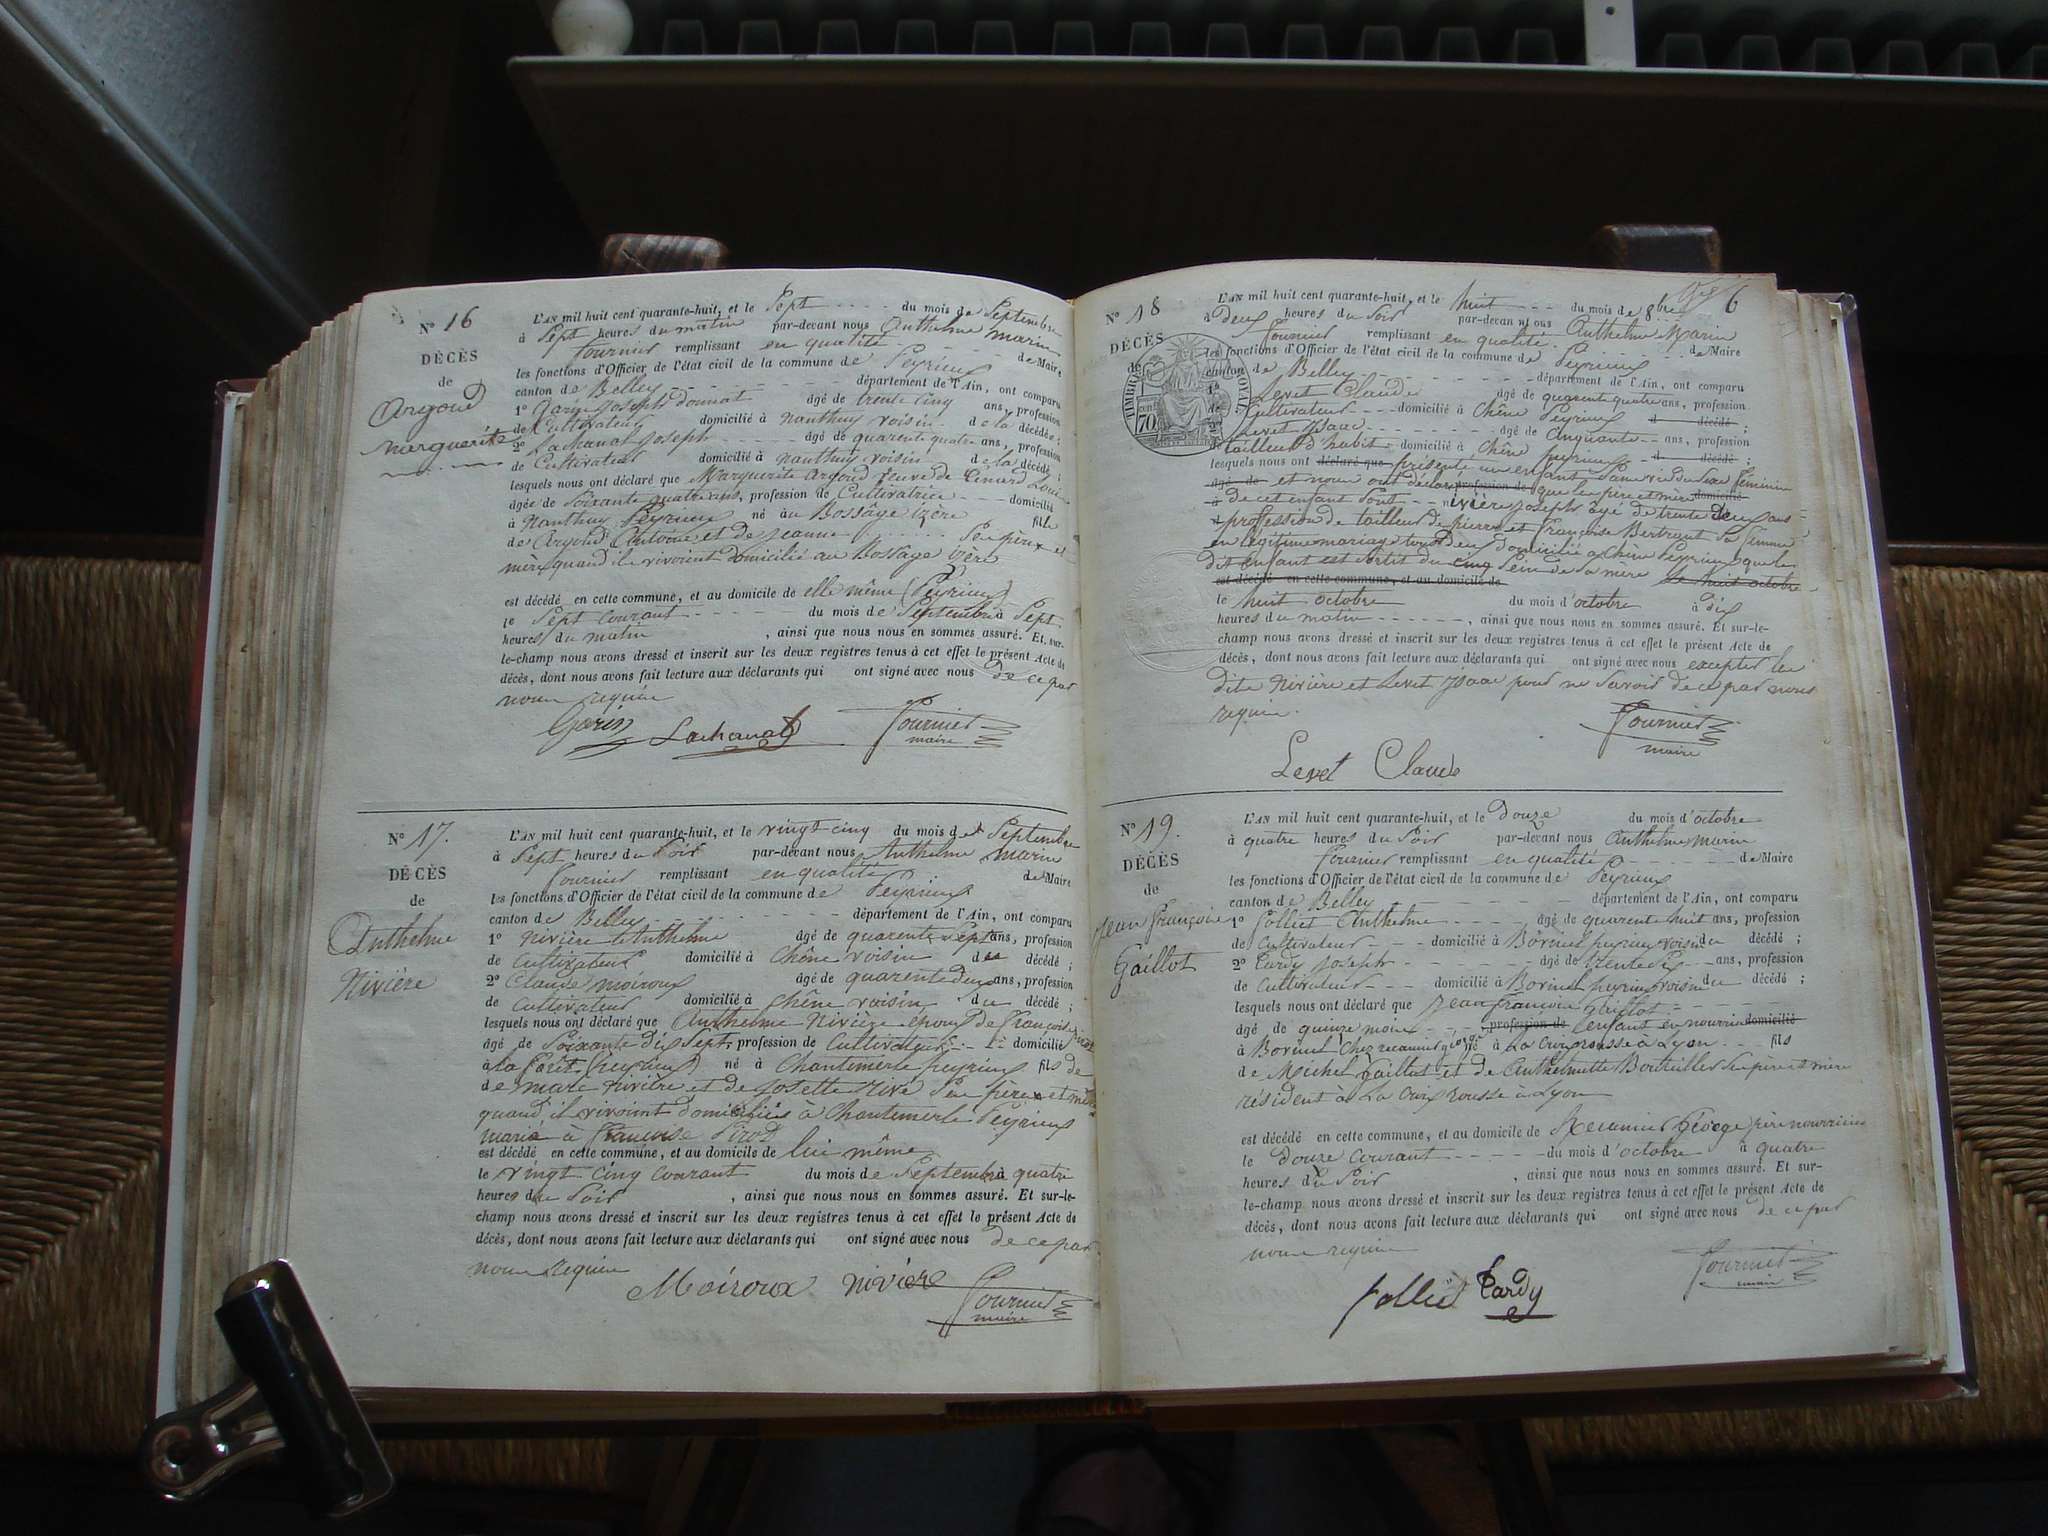 N° 16
DÉCÈS
de
Argoud
Marguerite
L'AN mil huit cent quarante-huit, et le Sept du mois de Septembre
à Sept heures du matin par-devant nous Anthelme Marin
Fournier remplissant en qualité de Maire
les fonctions d'Officier de l'état civil de la commune de Peyrieux
canton de Belley département de l'Ain, ont comparu
1° Garin Joseph Donnat âgé de trente cinq ans, profession
de Cultivateur domicilié à Nanthuy voisin de la décédée;
2° Lachanat Joseph âgé de quarente quatre ans, profession
de Cultivateur domicilié à Nanthuy voisin de la décédé;
lesquels nous ont déclaré que Marguerite Argoud veuve de
âgée de Soixante quatre ans, profession de Cultivatrice domicilié
à Nanthuy Peyrieux né au Bossâge izère fille
de Argoud Antoine et de Jeanne Feu père et
mère quand ils vivoient domicilié au Bossage izère
est décédé en cette commune, et au domicile de elle même (Peyrieux)
le Sept courant du mois de Septembre à Sept
heures du matin , ainsi que nous nous en sommes assuré. Et, sur-
le-champ nous avons dressé et inscrit sur les deux registres tenus à cet effet le présent Acte de
décès, dont nous avons fait lecture aux déclarants qui ont signé avec nous de ce par
nous requis
Garin Lachanat Fournier
maire
N° 17.
DÉCÈS
de
Anthelme
Nivière
L'AN mil huit cent quarante-huit, et le vingt-cinq du mois de Septembre
à Sept heures du Soir par-devant nous Anthelme Marin
Fournier remplissant en qualité de Maire
les fonctions d'Officier de l'état civil de la commune de Peyrieux
canton de Belley département de l'Ain, ont comparu
1° Nivière Anthelme âgé de quarente Sept ans, profession
de Cultivateur domicilié à Chêne voisin du décédé;
2° Claude Moiroux âgé de quarente deux ans, profession
de Cultivateur domicilié à Chêne voisin du décédé;
lesquels nous ont déclaré que Anthelme Nivière époux de Françoise
âgé de Soixante dix Sept, profession de Cultivateur domicilié
à la Forêt (Peyrieux) né à Chantemerle peyrieux fils de
de Marc Nivière et de Josette Nivé Feu père et mère
quand ils vivoint domiciliés à Chantemerle Peyrieux
marié à Françoise Pirod
est décédé en cette commune, et au domicile de lui même
le vingt cinq courant du mois de Septembre à quatre
heures du Soir , ainsi que nous nous en sommes assuré. Et sur-le-
champ nous avons dressé et inscrit sur les deux registres tenus à cet effet le présent Acte de
décès, dont nous avons fait lecture aux déclarants qui ont signé avec nous de ce par
nous requis
Moiroux Nivière Fournier
maire
6
N° 18
DÉCÈS
de
TIMBRE ROYAL
70
L'AN mil huit cent quarante-huit, et le huit du mois de 8bre
à deux heures du Soir par-devant nous Anthelme Marin
Fournier remplissant en qualité de Maire
les fonctions d'Officier de l'état civil de la commune de Peyrieux
canton de Belley département de l'Ain, ont comparu
1° Levet Claude âgé de quarente quatre ans, profession
de Cultivateur domicilié à Chêne Peyrieux d décédé;
2° Levet Isaac âgé de Cinquante ans, profession
de tailleur d'habit domicilié à Chêne peyrieux d décédé;
lesquels nous ont déclaré que présenté un enfant Sans vie du Sexe féminin
âgé de et nous ont déclaré profession de que les père et mère domicilié
à de cet enfant Sont Nivière Joseph âgé de trente deux ans
profession de tailleur de pierre et Françoise Bertrant Sa femme
en légitime mariage tous deux domicilié à Chêne Peyrieux que le
dit enfant est sortit du cinq Sein de Sa mère le huit octobre
est décédé en cette commune, et au domicile de
le huit octobre du mois d'octobre à dix
heures du matin , ainsi que nous nous en sommes assuré. Et sur-le-
champ nous avons dressé et inscrit sur les deux registres tenus à cet effet le présent Acte de
décès, dont nous avons fait lecture aux déclarants qui ont signé avec nous excepter les
dits Nivière et Levet Isaac pour ne Savoir de ce par nous
requis.
Fournier
maire
Levet Claude
N° 19.
DÉCÈS
de
Jean François
Gaillot
L'AN mil huit cent quarante-huit, et le Douze du mois d'octobre
à quatre heures du Soir par-devant nous Anthelme Marin
Fournier remplissant en qualité de Maire
les fonctions d'Officier de l'état civil de la commune de Peyrieux
canton de Belley département de l'Ain, ont comparu
1° Folliet Anthelme âgé de quarente huit ans, profession
de Cultivateur domicilié à Borinel peyrieux voisin du décédé;
2° Tardy Joseph âgé de trente Six ans, profession
de Cultivateur domicilié à Borinel peyrieux voisin du décédé;
lesquels nous ont déclaré que Jean François Gaillot
âgé de quinze mois profession de enfant en nourrice domicilié
à Borinel Chez recamier george né à La Croix rousse à Lyon fils
de Michel Gaillot et de Anthelmette Bouteilles Ses père et mère
résident à La Croix Rousse à Lyon
est décédé en cette commune, et au domicile de Recamier George père nourricier
le douze courant du mois d'octobre à quatre
heures du Soir , ainsi que nous nous en sommes assuré. Et sur-
le-champ nous avons dressé et inscrit sur les deux registres tenus à cet effet le présent Acte de
décès, dont nous avons fait lecture aux déclarants qui ont signé avec nous de ce par
nous requis
Folliet Tardy Fournier
maire